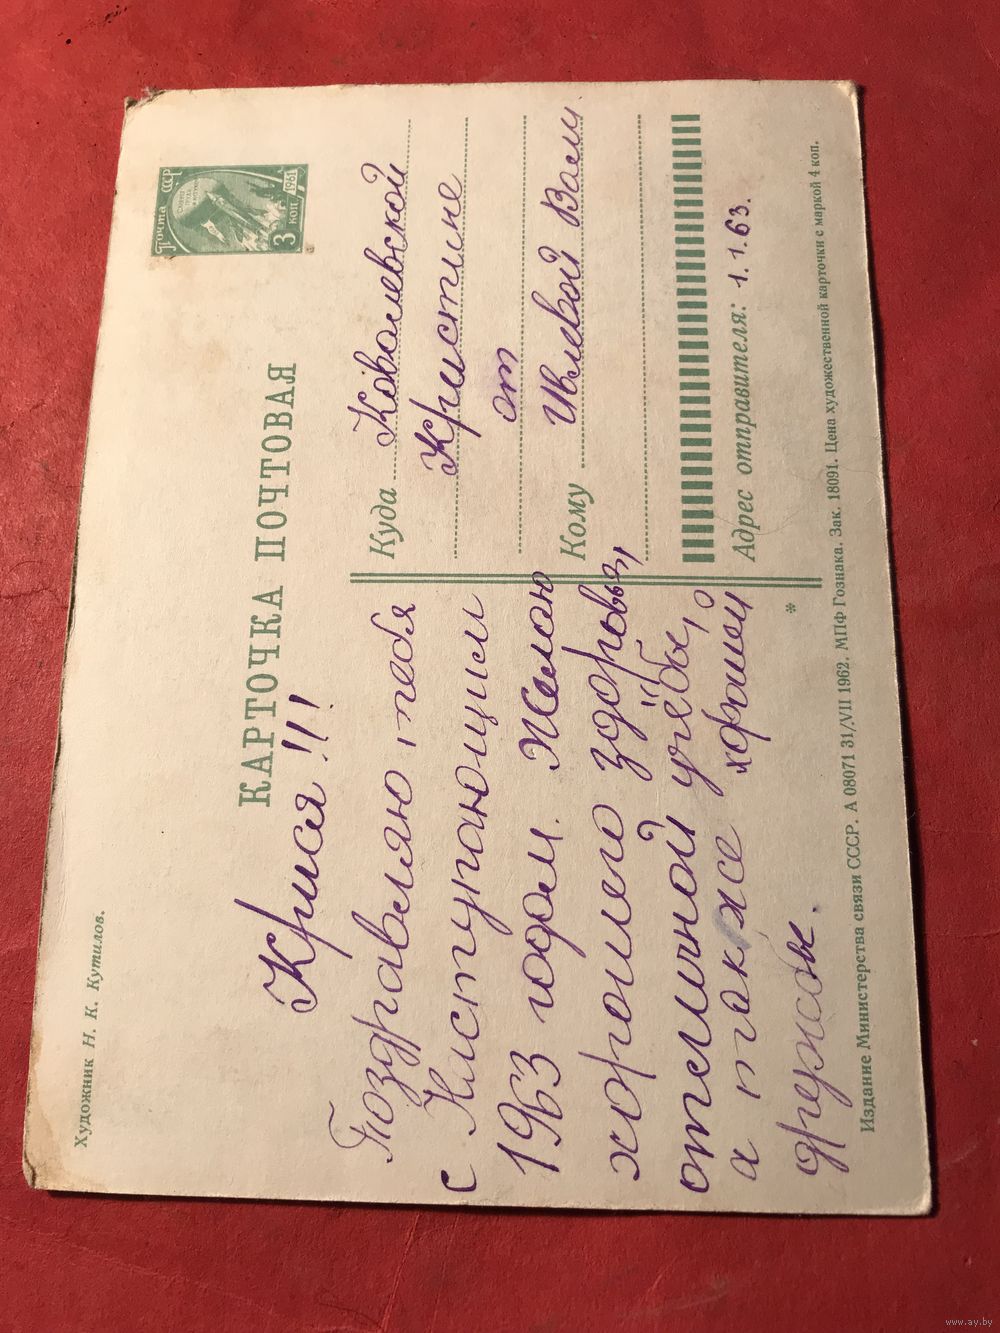 Художник Н. К. Кутилов.
КАРТОЧКА ПОЧТОВАЯ
Почта СССР
3 коп. 1961
Крися!!!
Поздравляю тебя
с Наступающим
1963 годом. Желаю
хорошего здоровья,
отличной учёбы,
а также хорошей
дружбы.
Куда Ковалевской
Кристине
от
Кому Ивлевой Вали
Адрес отправителя: 1.1.63.
*
Издание Министерства связи СССР. А 08071 31/VII 1962. МПФ Гознака. Зак. 18091. Цена художественной карточки с маркой 4 коп.
www.ay.by